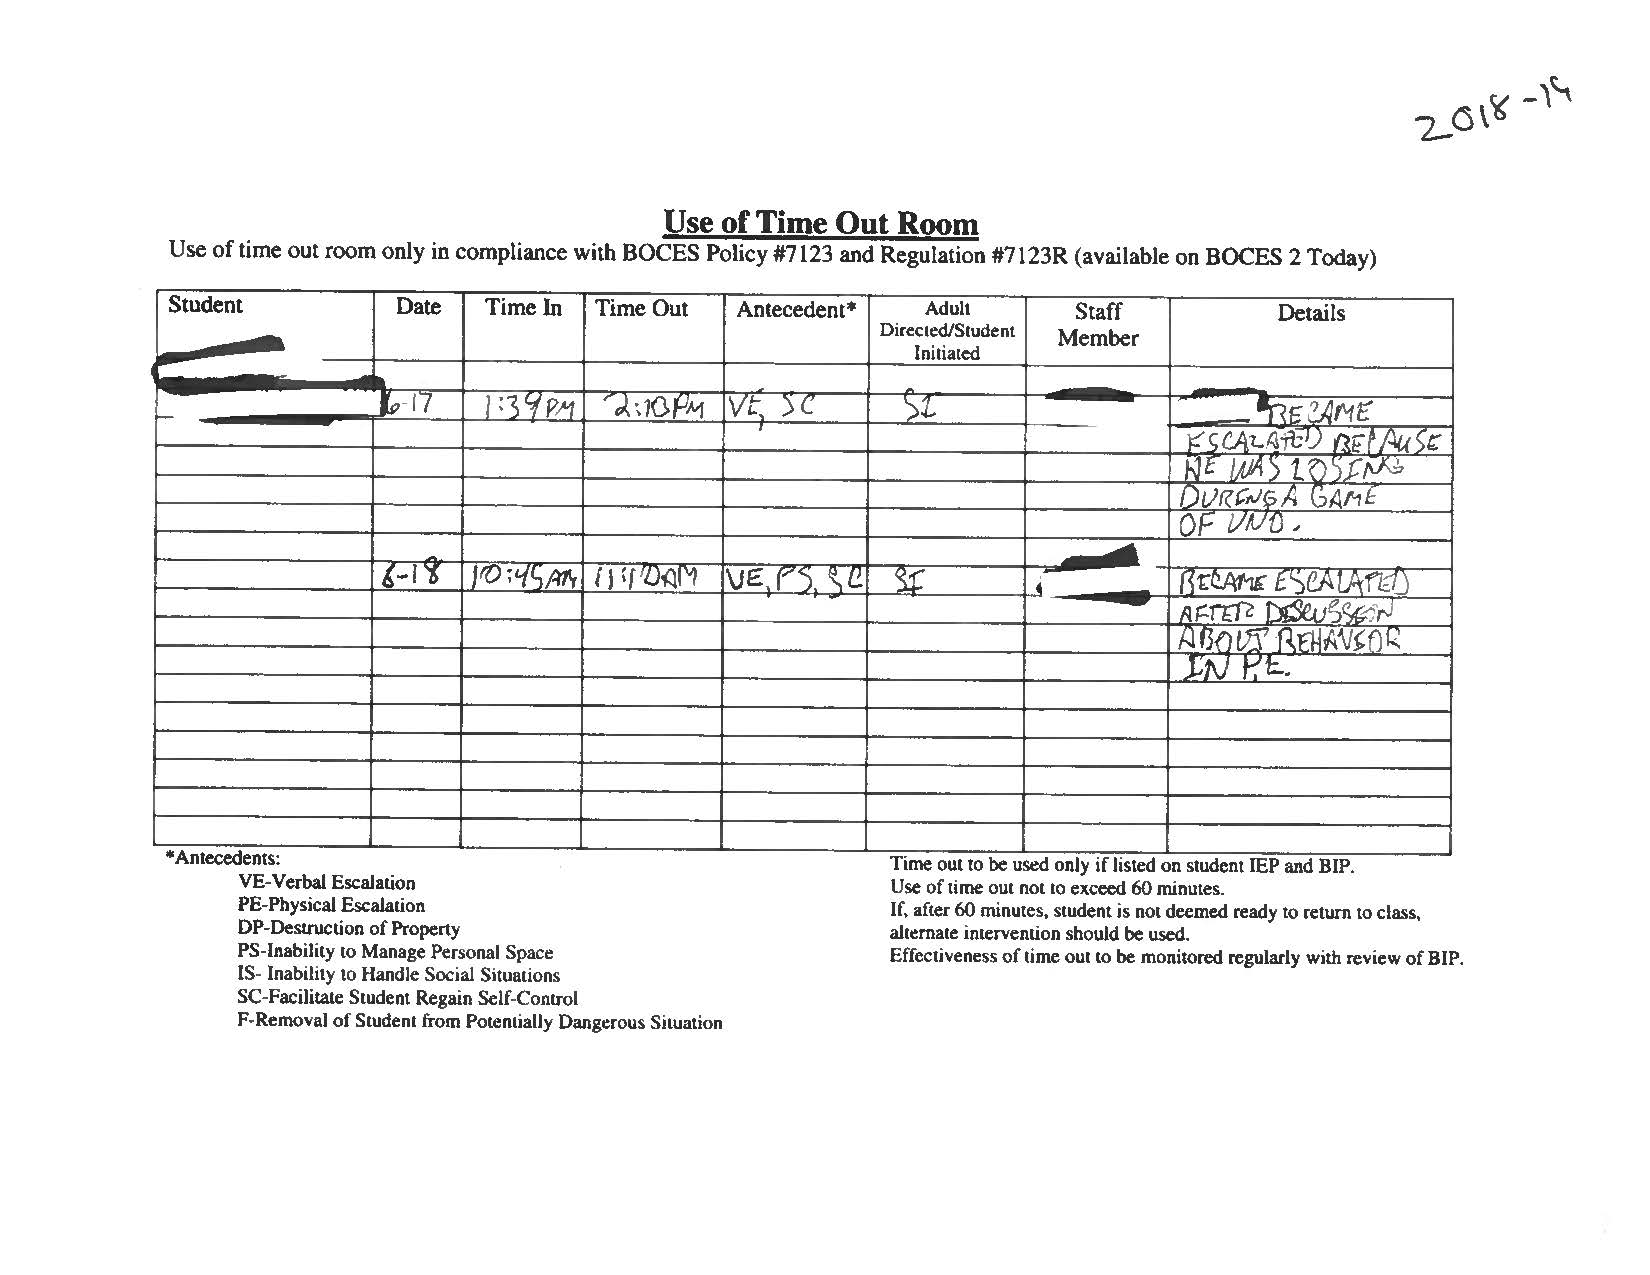 2018-19
Use of Time Out Room
Use of time out room only in compliance with BOCES Policy #7123 and Regulation #7123R (available on BOCES 2 Today)
Student Date Time In Time Out Antecedent* Adult Directed/Student Initiated Staff Member Details
6-17 1:39PM 2:10PM VE, SC SI BECAME
ESCALATED BECAUSE
HE WAS LOSING
DURING A GAME
OF UNO.
6-18 10:45AM 11:10AM VE, PS, SC SI BECAME ESCALATED
AFTER DISCUSSION
ABOUT BEHAVIOR
IN P.E.
*Antecedents:
VE-Verbal Escalation
PE-Physical Escalation
DP-Destruction of Property
PS-Inability to Manage Personal Space
IS- Inability to Handle Social Situations
SC-Facilitate Student Regain Self-Control
F-Removal of Student from Potentially Dangerous Situation
Time out to be used only if listed on student IEP and BIP.
Use of time out not to exceed 60 minutes.
If, after 60 minutes, student is not deemed ready to return to class,
alternate intervention should be used.
Effectiveness of time out to be monitored regularly with review of BIP.